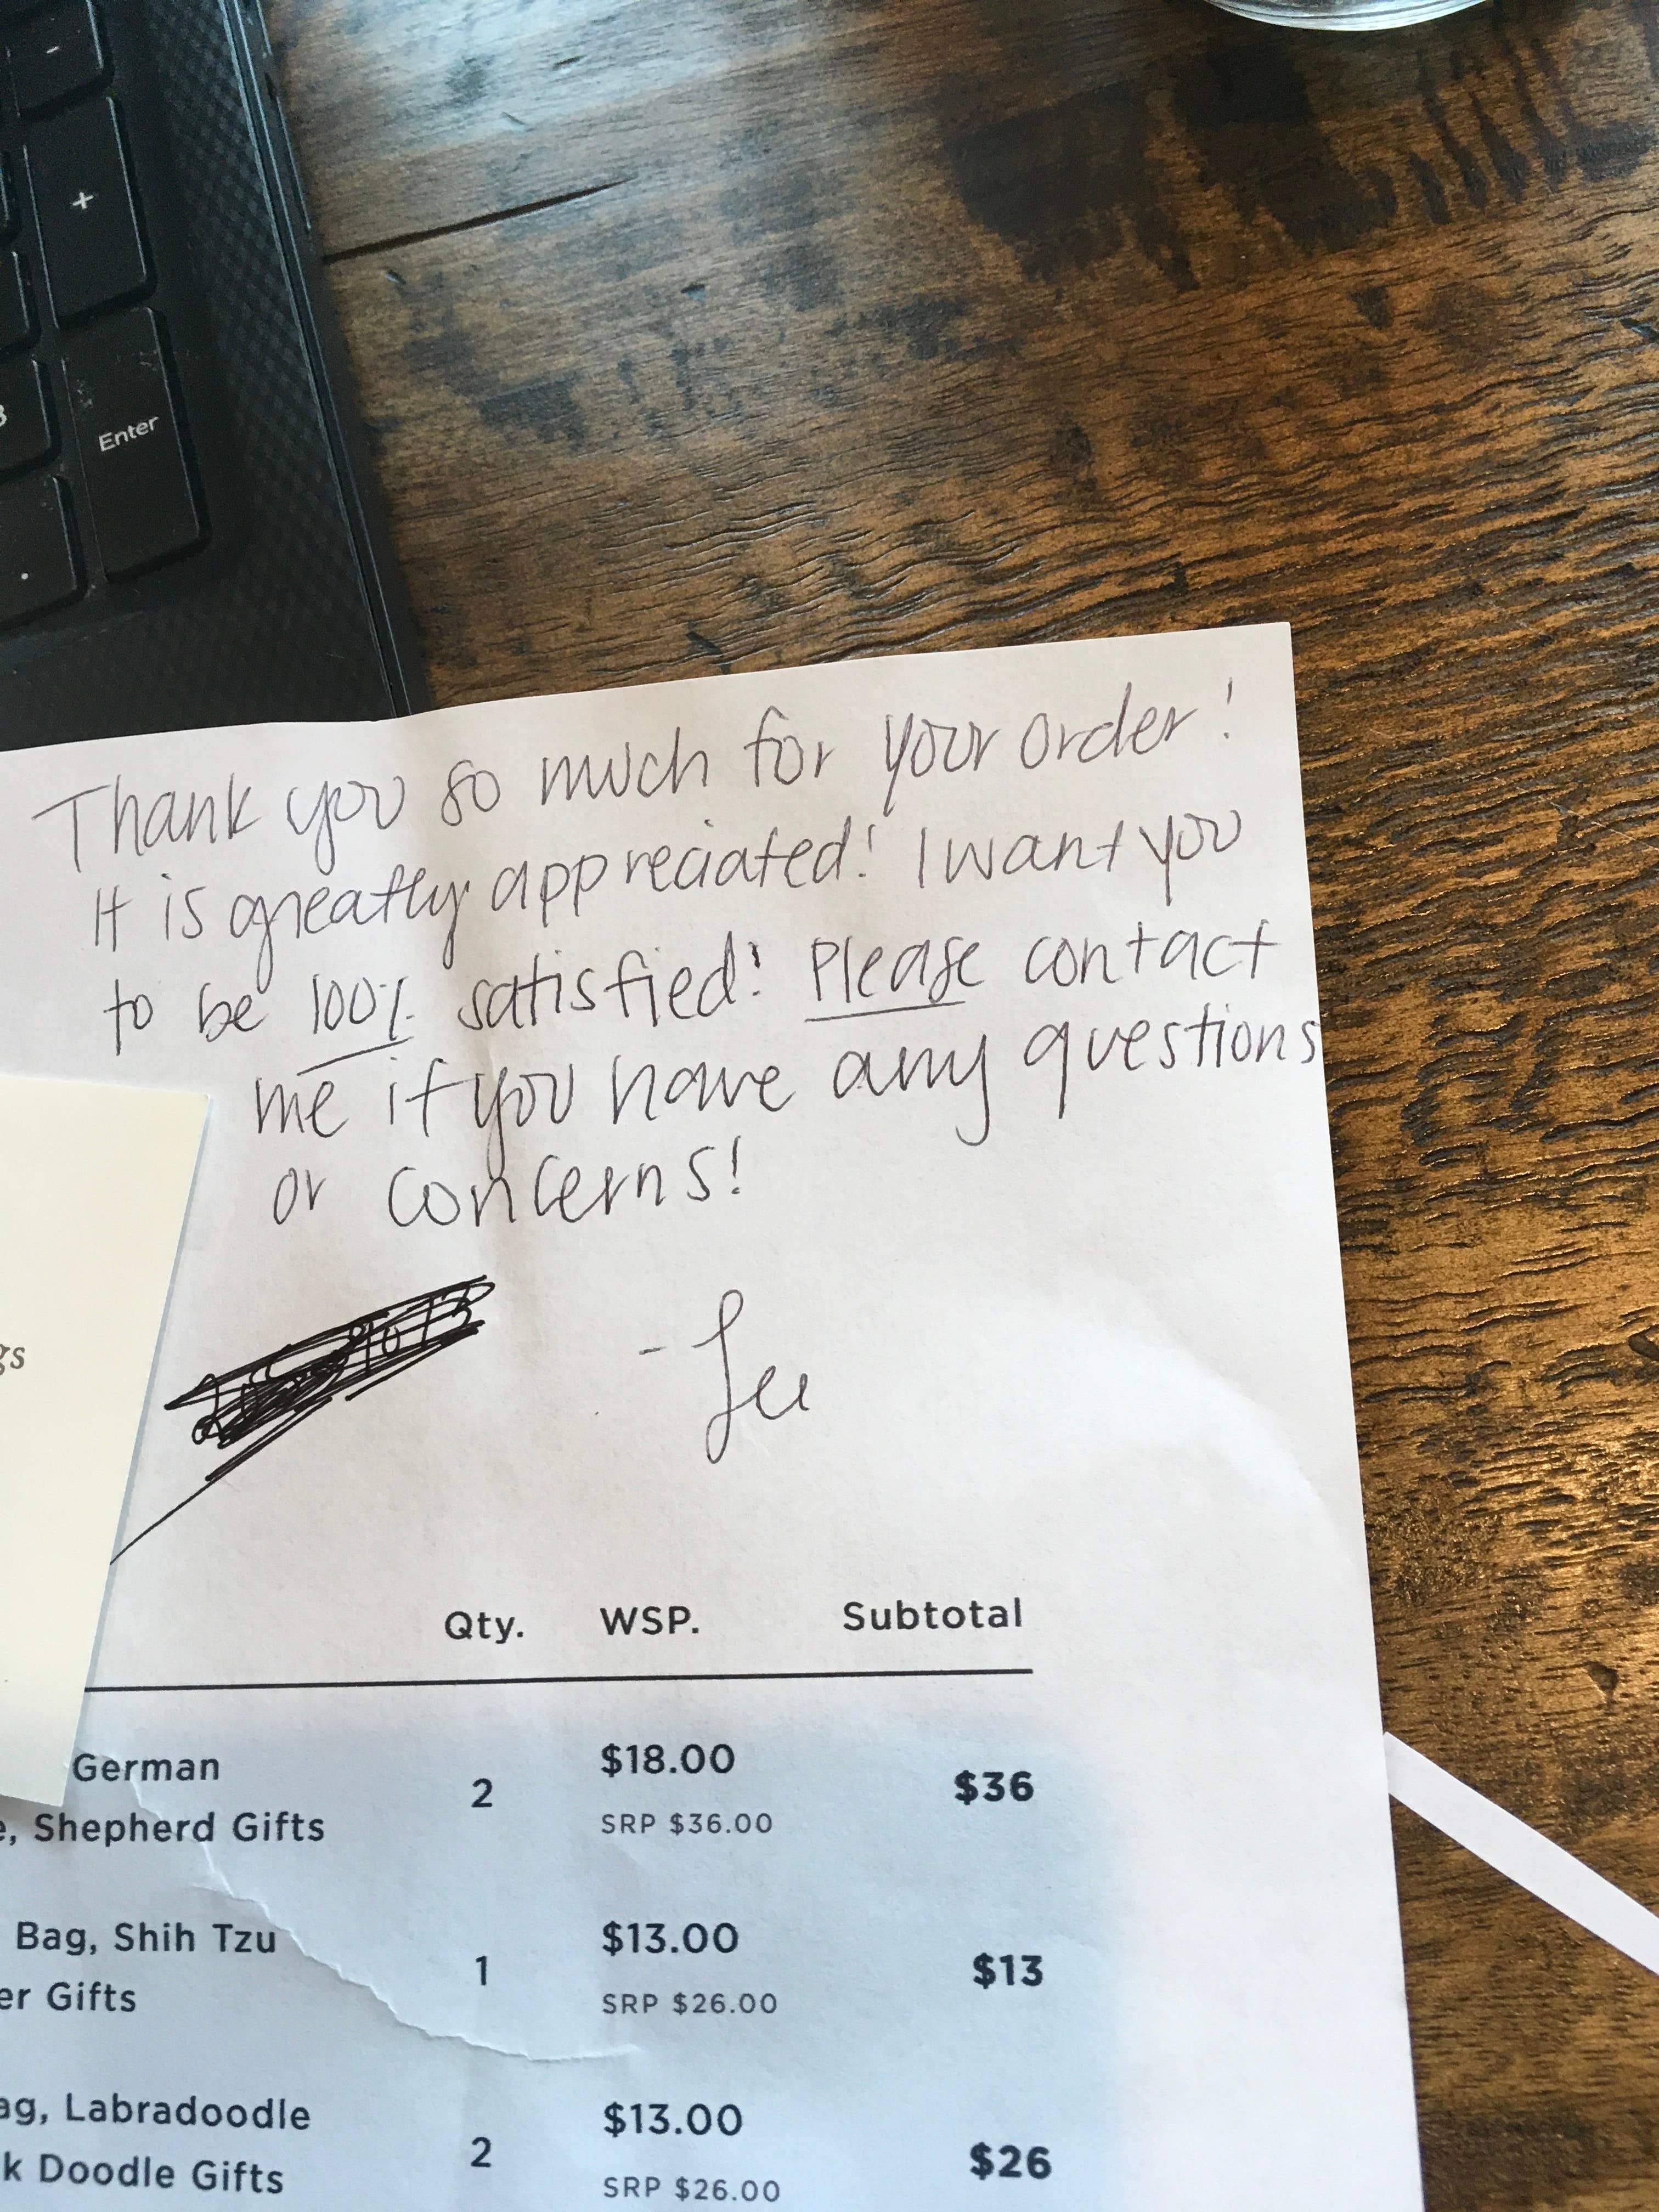 -
+
Enter
3
.
Thank you so much for your order!
It is greatly appreciated! I want you
to be 100% satisfied! Please contact
me if you have any questions
or concerns!
gs
Qty. WSP. Subtotal
German
2 $18.00 $36
e, Shepherd Gifts
SRP $36.00
Bag, Shih Tzu
1 $13.00 $13
er Gifts
SRP $26.00
ag, Labradoodle
2 $13.00 $26
k Doodle Gifts
SRP $26.00